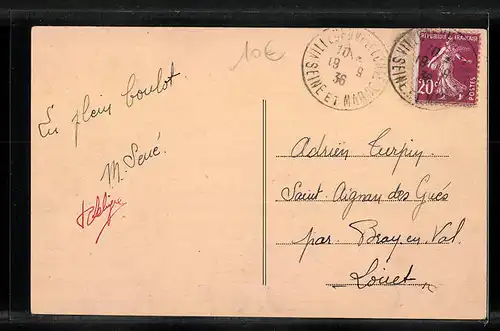 10€
RÉPUBLIQUE FRANÇAISE
20c
POSTES
SEINE ET MARNE
19 - 9
36
En plein boulot.
M. Sené.
Adrien Turpin
Saint Aignan des Gués
par Bray en Val
Loiret